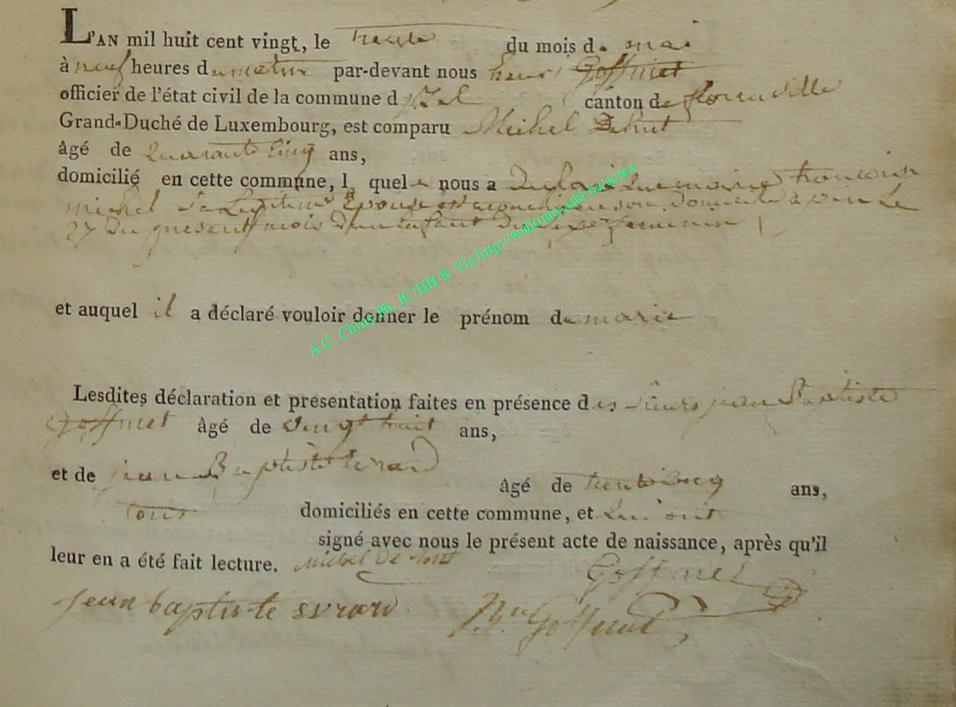 L'AN mil huit cent vingt, le trente du mois de mai
à neuf heures du matin par-devant nous henri Goffinet
officier de l'état civil de la commune d'izel canton de florenville
Grand-Duché de Luxembourg, est comparu Michel Dehut
âgé de Quarante Cinq ans,
domicilié en cette commune, lequel nous a declaré que marie francoise
michel sa Legitime Epouse est accouchée en son domicile à pin Le
27 du present mois d'un Enfant du sexe feminin
et auquel il a déclaré vouloir donner le prénom de marie
Lesdites déclaration et presentation faites en présence des sieurs jean Baptiste
Goffinet âgé de vingt huit ans,
et de jean Baptiste Evrard
âgé de trente Cinq ans,
tous domiciliés en cette commune, et qui ont
signé avec nous le présent acte de naissance, après qu'il
leur en a été fait lecture. michel de
Goffinet
jean baptiste evrard Goffinet
A.C. Chiny Ph. JC HB ® Via http://wallonia-asbl.be/actes